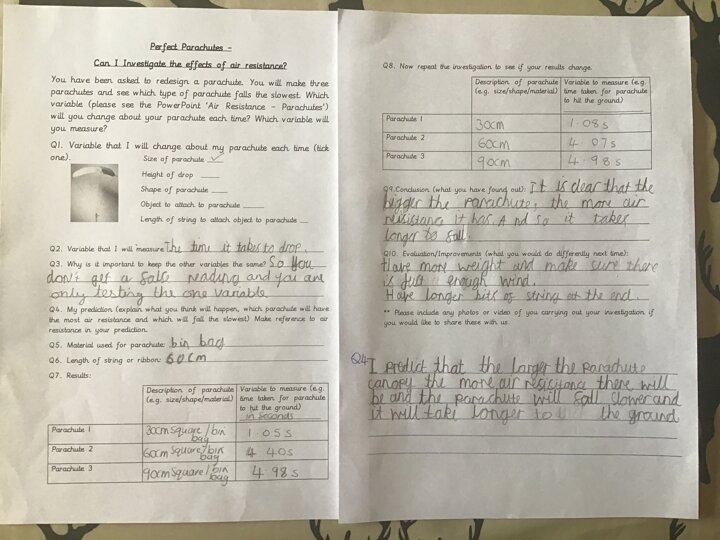 Perfect Parachutes -
Can I Investigate the effects of air resistance?
You have been asked to redesign a parachute. You will make three
parachutes and see which type of parachute falls the slowest. Which
variable (please see the PowerPoint 'Air Resistance - Parachutes')
will you change about your parachute each time? Which variable will
you measure?
Q1. Variable that I will change about my parachute each time (tick
one).
Size of parachute ✓
Height of drop ___
Shape of parachute ___
Object to attach to parachute ___
Length of string to attach object to parachute _
Q2. Variable that I will measure The time it takes to drop.
Q3. Why is it important to keep the other variables the same? So you
don't get a false reading and you are
only testing the one variable
Q4. My prediction (explain what you think will happen, which parachute will have
the most air resistance and which will fall the slowest) Make reference to air
resistance in your prediction.
Q5. Material used for parachute: bin bag
Q6. Length of string or ribbon: 60cm
Q7. Results:
Description of parachute (e.g. size/shape/material)
Variable to measure (e.g. time taken for parachute to hit the ground)
in seconds
Parachute 1 30cm square/bin bag 1.05s
Parachute 2 60cm square/bin bag 4 40s
Parachute 3 90cm square/bin bag 4.98s
Q8. Now repeat the investigation to see if your results change.
Description of parachute (e.g. size/shape/material)
Variable to measure (e.g. time taken for parachute to hit the ground)
Parachute 1 30cm 1.08s
Parachute 2 60cm 4 07s
Parachute 3 90cm 4.98s
Q9.Conclusion (what you have found out): It is clear that the
bigger the parachute, the more air
resistance it has. And so it takes
longer to fall.
Q10. Evaluation/Improvements (what you would do differently next time):
Have more weight and make sure there
is just enough wind.
Have longer bits of string at the end.
** Please include any photos or video of you carrying out your investigation if
you would like to share these with us.
Q4 I predict that the larger the parachute
canopy the more air resistance there will
be and the parachute will fall slower and
it will take longer to the ground